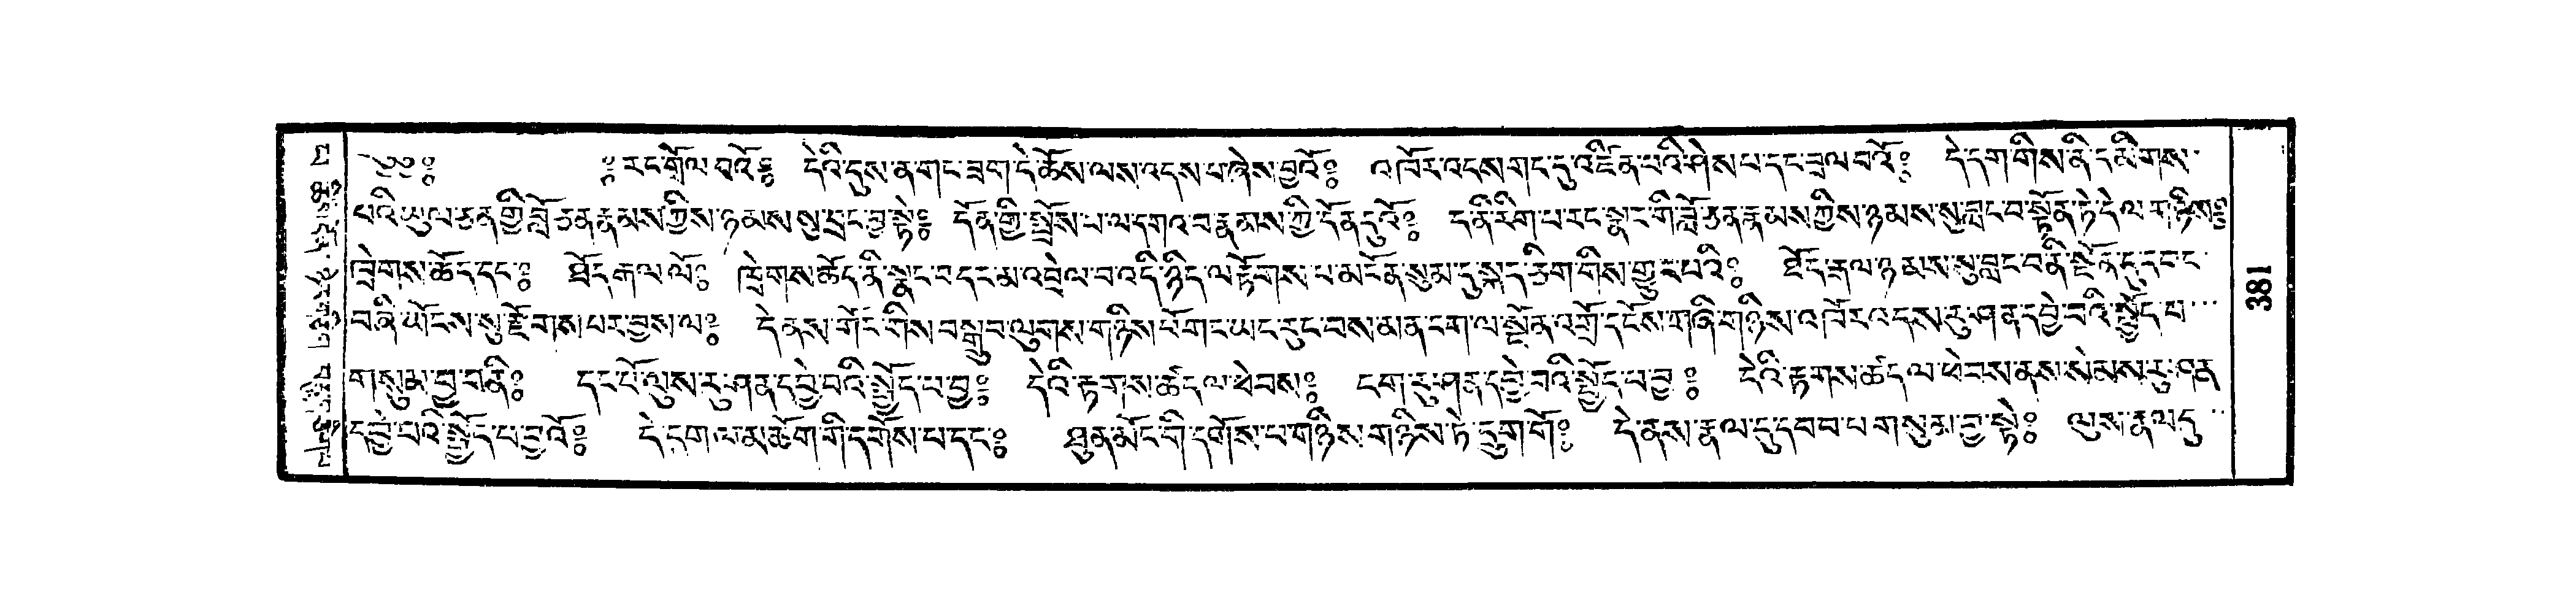 ༄༅༔ ༔རང་གྲོལ་བའོ༔ དེའི་དུས་ན་གང་ཟག་དེ་ཆོས་ལས་འདས་པ་ཞེས་བྱའོ༔ འཁོར་འདས་གང་དུ་འཛིན་པའི་ཤེས་པ་དང་བྲལ་བའོ༔ དེ་དག་གིས་ནི་དམིགས་
པའི་ཡུལ་ཅན་གྱི་བློ་ཅན་རྣམས་ཀྱིས་ཉམས་སུ་བླང་བྱ་སྟེ༔ དོན་གྱི་སྤྲོས་པ་ལ་དགའ་བ་རྣམས་ཀྱི་དོན་དུའོ༔ ད་ནི་རིག་པ་རང་སྣང་གི་བློ་ཅན་རྣམས་ཀྱིས་ཉམས་སུ་བླང་བ་སྟོན་ཏེ་དེ་ལ་ཉིས༔
ཁྲེགས་ཆོད་དང་༔ ཐོད་རྒལ་ལོ༔ ཁྲེགས་ཆོད་ནི་སྣང་བ་དང་མ་འབྲེལ་བ་འདི་ཉིད་ལ་རྟོགས་པ་མངོན་སུམ་དུ་སྐད་ཅིག་གིས་གྱུར་པའི༔ ཐོད་རྒལ་ཉམས་སུ་བླང་བ་ནི་སྔོན་དུ་དབང་
བཞི་ཡོངས་སུ་རྫོགས་པར་བྱས་ལ༔ དེ་ནས་གོང་གིས་བསྒྲུབ་ལུགས་གཉིས་པོ་གང་ཡང་རུང་བས་མན་ངག་ལ་སྔོན་འགྲོ་དངོས་གཞི་གཉིས་འཁོར་འདས་རུ་ཤན་དབྱེ་བའི་སྤྱོད་པ་
གསུམ་བྱ་བ་ནི༔ དང་པོ་ལུས་རུ་ཤན་དབྱེ་བའི་སྤྱོད་པ་བྱ༔ དེའི་རྟགས་ཚད་ལ་ཕེབས༔ ངག་རུ་ཤན་དབྱེ་བའི་སྤྱོད་པ་བྱ༔ དེའི་རྟགས་ཚད་ལ་ཕེབས་ནས་སེམས་རུ་ཤན་
དབྱེ་བའི་སྤྱོད་པ་བྱའོ༔ དེ་དག་ལ་མཆོག་གི་དགོས་པ་དང་༔ ཐུན་མོང་གི་དགོས་པ་གཉིས་གཉིས་ཏེ་དྲུག་གོ༔ དེ་ནས་རྣལ་དུ་དབབ་པ་གསུམ་བྱ་སྟེ༔ ལུས་རྣལ་དུ་
381